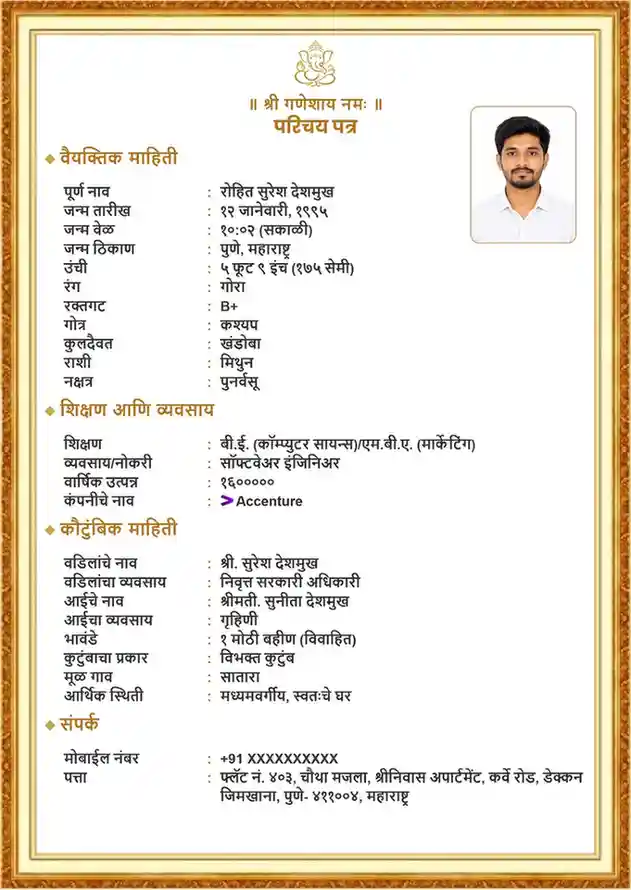 ॥ श्री गणेशाय नमः ॥
परिचय पत्र
वैयक्तिक माहिती
पूर्ण नाव : रोहित सुरेश देशमुख
जन्म तारीख : १२ जानेवारी, १९९५
जन्म वेळ : १०:०२ (सकाळी)
जन्म ठिकाण : पुणे, महाराष्ट्र
उंची : ५ फूट ९ इंच (१७५ सेमी)
रंग : गोरा
रक्तगट : B+
गोत्र : कश्यप
कुलदैवत : खंडोबा
राशी : मिथुन
नक्षत्र : पुनर्वसू
शिक्षण आणि व्यवसाय
शिक्षण : बी.ई. (कॉम्प्युटर सायन्स)/एम.बी.ए. (मार्केटिंग)
व्यवसाय/नोकरी : सॉफ्टवेअर इंजिनिअर
वार्षिक उत्पन्न : १६०००००
कंपनीचे नाव : Accenture
कौटुंबिक माहिती
वडिलांचे नाव : श्री. सुरेश देशमुख
वडिलांचा व्यवसाय : निवृत्त सरकारी अधिकारी
आईचे नाव : श्रीमती. सुनीता देशमुख
आईचा व्यवसाय : गृहिणी
भावंडे : १ मोठी बहीण (विवाहित)
कुटुंबाचा प्रकार : विभक्त कुटुंब
मूळ गाव : सातारा
आर्थिक स्थिती : मध्यमवर्गीय, स्वतःचे घर
संपर्क
मोबाईल नंबर : +91 XXXXXXXXXX
पत्ता : फ्लॅट नं. ४०३, चौथा मजला, श्रीनिवास अपार्टमेंट, कर्वे रोड, डेक्कन
जिमखाना, पुणे- ४११००४, महाराष्ट्र